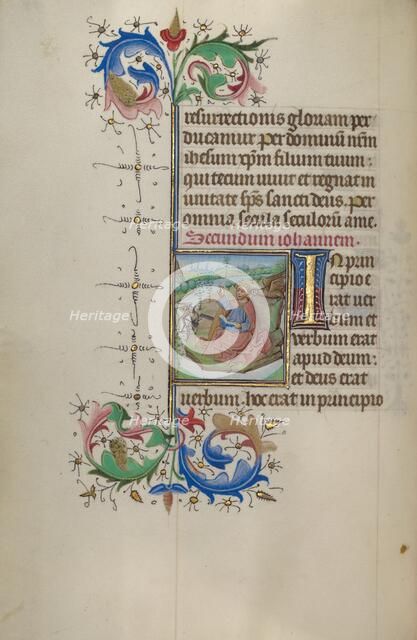 resurrectionis gloriam per
ducamur per dominum nrm
ihesum xpm filium tuum:
qui tecum uiuit et regnat in
unitate sps sancti deus. per
omnia secula seculorum ame.
Secundum iohannem.
In prin
cipio e
rat uer
bum et
verbum erat
apud deum:
et deus erat
uerbum. hoc erat in principio
Heritage
Heritage
Heritage
Heritage
Heritage
Heritage
Heritage